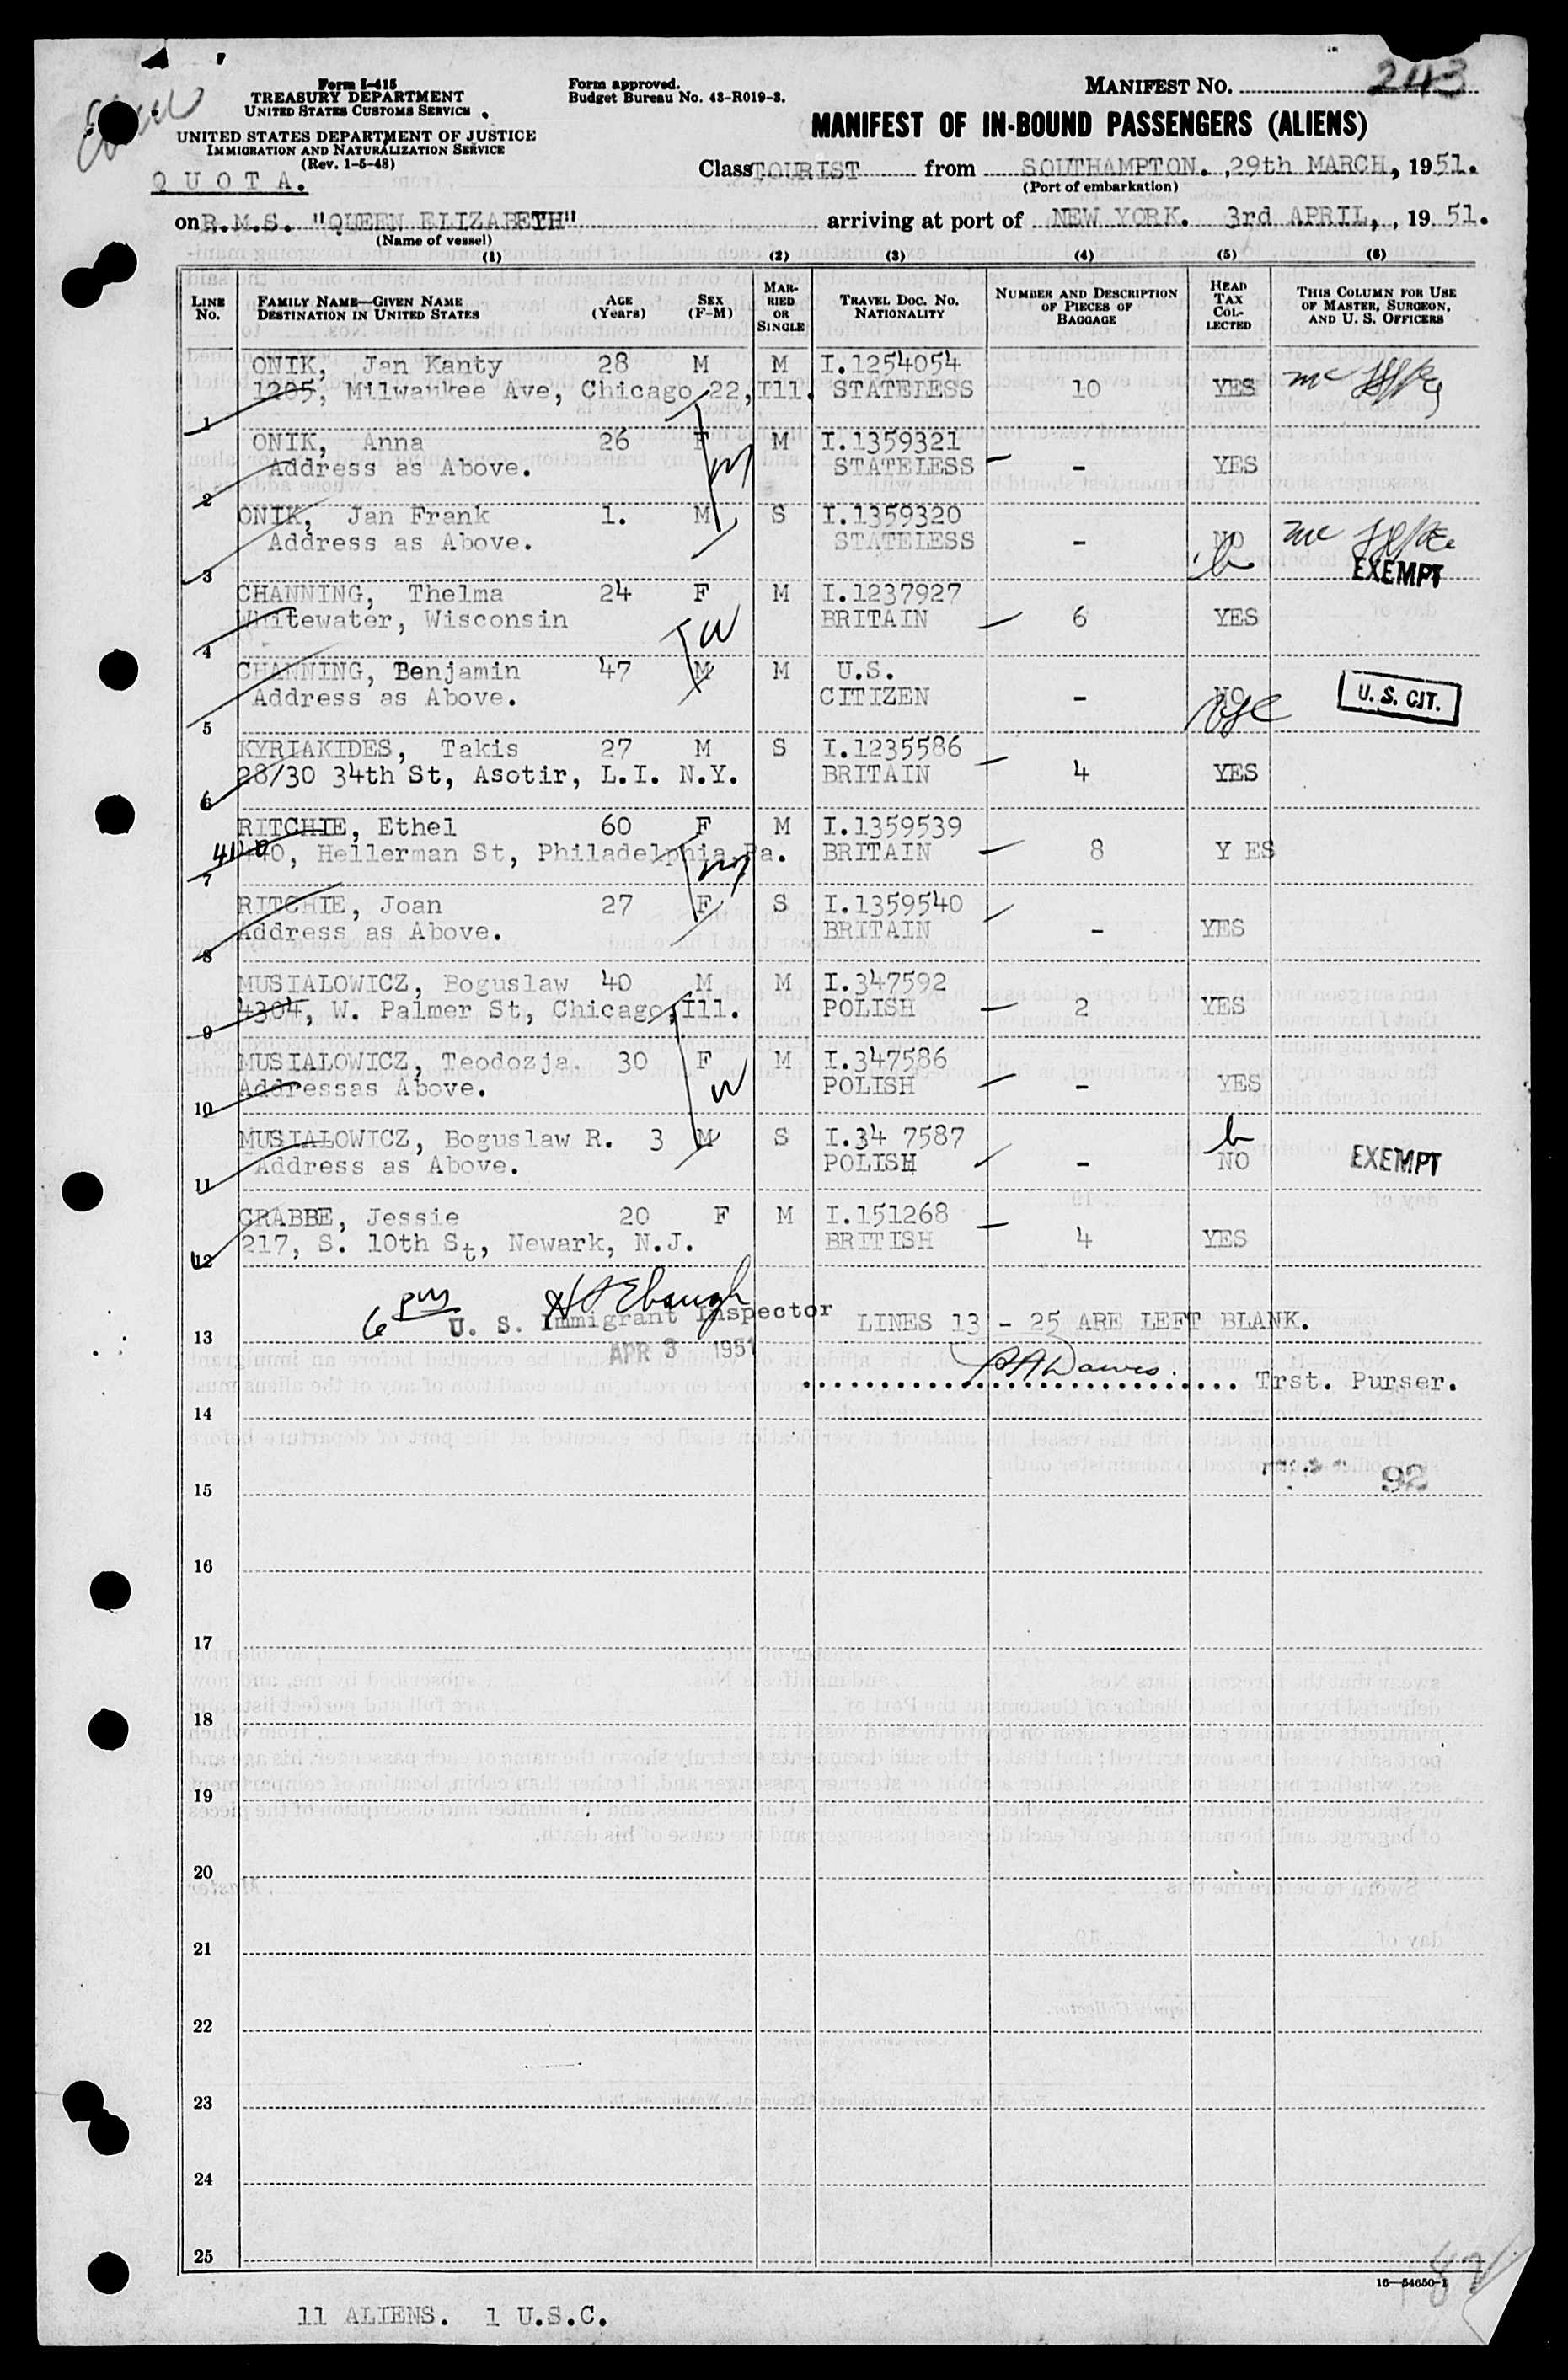 Form I-415
TREASURY DEPARTMENT
UNITED STATES CUSTOMS SERVICE
UNITED STATES DEPARTMENT OF JUSTICE
IMMIGRATION AND NATURALIZATION SERVICE
(Rev. 1-5-48)
Q U O T A.
Form approved.
Budget Bureau No. 43-R019-3.
MANIFEST NO. 243
MANIFEST OF IN-BOUND PASSENGERS (ALIENS)
Class TOURIST from SOUTHAMPTON. , 29th MARCH, 1951.
(Port of embarkation)
on R.M.S. "QUEEN ELIZABETH" arriving at port of NEW YORK. 3rd APRIL, , 19 51.
(Name of vessel)
(1) (2) (3) (4) (5) (6)
LINE No. FAMILY NAME—GIVEN NAME DESTINATION IN UNITED STATES AGE (Years) SEX (F-M) MARRIED OR SINGLE TRAVEL DOC. NO. NATIONALITY NUMBER AND DESCRIPTION OF PIECES OF BAGGAGE HEAD TAX COLLECTED THIS COLUMN FOR USE OF MASTER, SURGEON, AND U. S. OFFICERS
ONIK, Jan Kanty 28 M M I.1254054
1 1205, Milwaukee Ave, Chicago 22, Ill. STATELESS 10 YES
ONIK, Anna 26 F M I.1359321
2 Address as Above. STATELESS - YES
ONIK, Jan Frank 1. M S I.1359320
3 Address as Above. STATELESS - NO EXEMPT
CHANNING, Thelma 24 F M I.1237927
4 Whitewater, Wisconsin BRITAIN 6 YES
CHANNING, Benjamin 47 M M U.S.
5 Address as Above. CITIZEN - NO U. S. CIT.
KYRIAKIDES, Takis 27 M S I.1235586
6 28/30 34th St, Asotir, L.I. N.Y. BRITAIN 4 YES
RITCHIE, Ethel 60 F M I.1359539
7 Hellerman St, Philadelphia Pa. BRITAIN 8 Y ES
RITCHIE, Joan 27 F S I.1359540
8 Address as Above. BRITAIN - YES
MUSIALOWICZ, Boguslaw 40 M M I.347592
9 4304, W. Palmer St, Chicago, Ill. POLISH 2 YES
MUSIALOWICZ, Teodozja. 30 F M I.347586
10 Addressas Above. POLISH - YES
MUSIALOWICZ, Boguslaw R. 3 M S I.34 7587
11 Address as Above. POLISH - NO EXEMPT
CRABBE, Jessie 20 F M I.151268
12 217, S. 10th St, Newark, N.J. BRITISH 4 YES
6 pm
U. S. Immigrant Inspector
13 LINES 13 - 25 ARE LEFT BLANK.
APR 3 1951
Trst. Purser.
14
92
15
16
17
18
19
20
21
22
23
24
25
16—54650-1
11 ALIENS. 1 U.S.C.